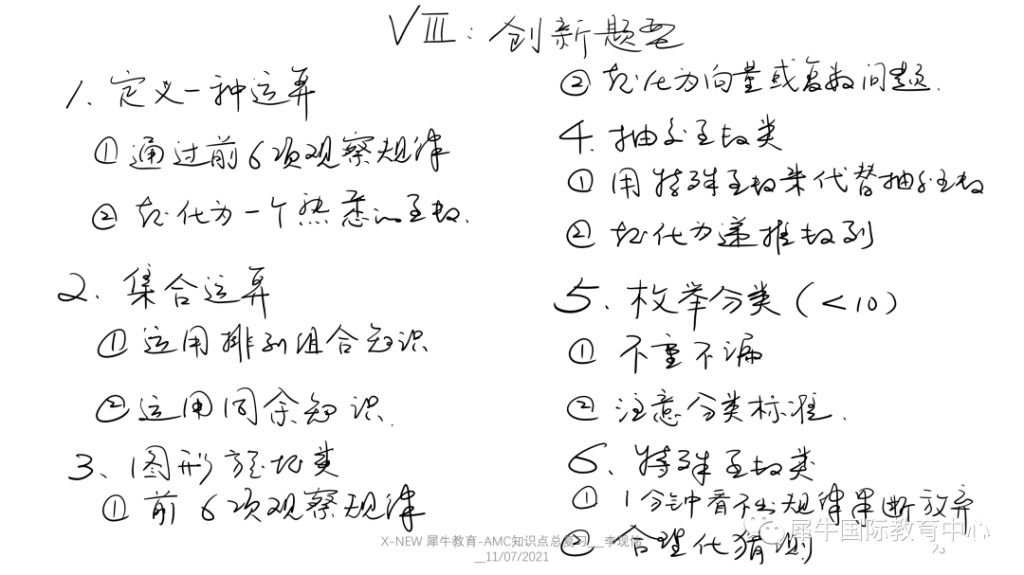 VIII：创新题型
1、定义一种运算
①通过前6项观察规律
②转化为一个熟悉的函数.
2、集合运算
①运用排列组合知识
②运用同余知识.
3、图形旋转类
①前6项观察规律
②转化为向量或复数问题.
4.抽象函数类
①用特殊函数来代替抽象函数
②转化为递推数列
5、枚举分类(<10)
①不重不漏
②注意分类标准.
6、特殊函数类
①1分钟看不出规律果断放弃
②合理化猜测
犀牛国际教育中心
X-NEW 犀牛教育-AMC知识点总复习__李现伟
__11/07/2021